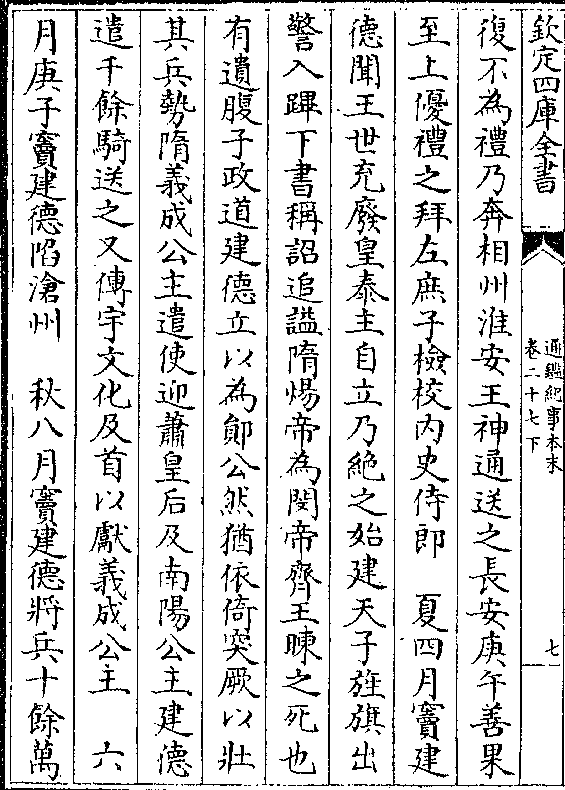 欽定四庫全書
通鑑紀事本末
卷二十七下
七
復不為禮乃奔相州淮安王神通送之長安庚午善果
至上優禮之拜左庶子檢校內史侍郎　夏四月竇建
德聞王世充廢皇泰主自立乃絶之始建天子旌旗出
警入蹕下書稱詔追謚隋煬帝為閔帝齊王暕之死也
有遺腹子政道建德立以為鄖公然猶依倚突厥以壯
其兵勢隋義成公主遣使迎蕭皇后及南陽公主建德
遣千餘騎送之又傳宇文化及首以獻義成公主　六
月庚子竇建德陷滄州　秋八月竇建德將兵十餘萬